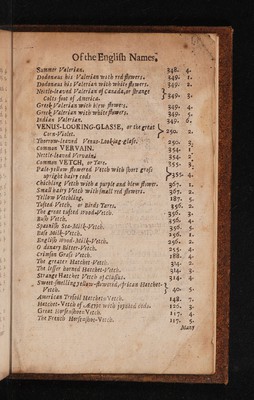 Of the Engliſh Names.
Summer Valerian. 348. 4.
Dodonæus his Valerian with red flowers. 349. 1.
Dodonæus his Valerian with white flowers. 349. 2.
Nettle-leaved Valerian of Canada, or ſtrange
Colts foot of America. } 349. 3.
Greek Valerian with blew flowers. 349. 4.
Greek Valerian with white flowers. 349. 5.
Indian Valerian. 349. 6.
VENUS-LOOKING-GLASSE, or the great
Corn-Violet. } 250. 2.
Thorrow-leaved Venus-Looking-glaſſe. 250. 3.
Common VERVAIN. 354. 1
Nettle-leaved Vervain. 354. 2
Common VETCH, or Tare. 355. 3.
Pale-yellow flowered Vetch with ſhort groſs
upright hairy cods } 355. 4.
Chichling Vetch with a purple and blew flower. 367. 1.
Small hairy Vetch with ſmall red flowers. 367. 2.
Yellow Vetchling. 187. 5.
Tufted Vetch, or Birds Tares. 356. 2.
The great tufted wood-Vetch. 356. 3.
Buſh Vetch. 356. 4.
Spaniſh Sea-Milk-Vetch. 356. 5.
Baſe Milk-Vetch. 256. 1.
Engliſh wood-Milk-Vetch. 256. 2.
Ordinary Bitter-Vetch. 255. 4.
Crimſon Graſs-Vetch. 188. 4.
The greater Hatchet-Vetch. 314. 2.
The leſſer horned Hatchet-Vetch. 314. 3.
Strange Hatchet Vetch of Cluſius. 314. 4.
Sweet-ſmelling yellow-flowered African Hatchet-
Vetch. } 40. 5.
American Trefoil Hatchet-Vetch. 148. 7.
Hatchet-Vetch of Ægypt with joynted cods. 120. 3.
Great Horſeſhoe-Vetch. 117. 4.
The French Horſeſhoe-Vetch. 117. 5.